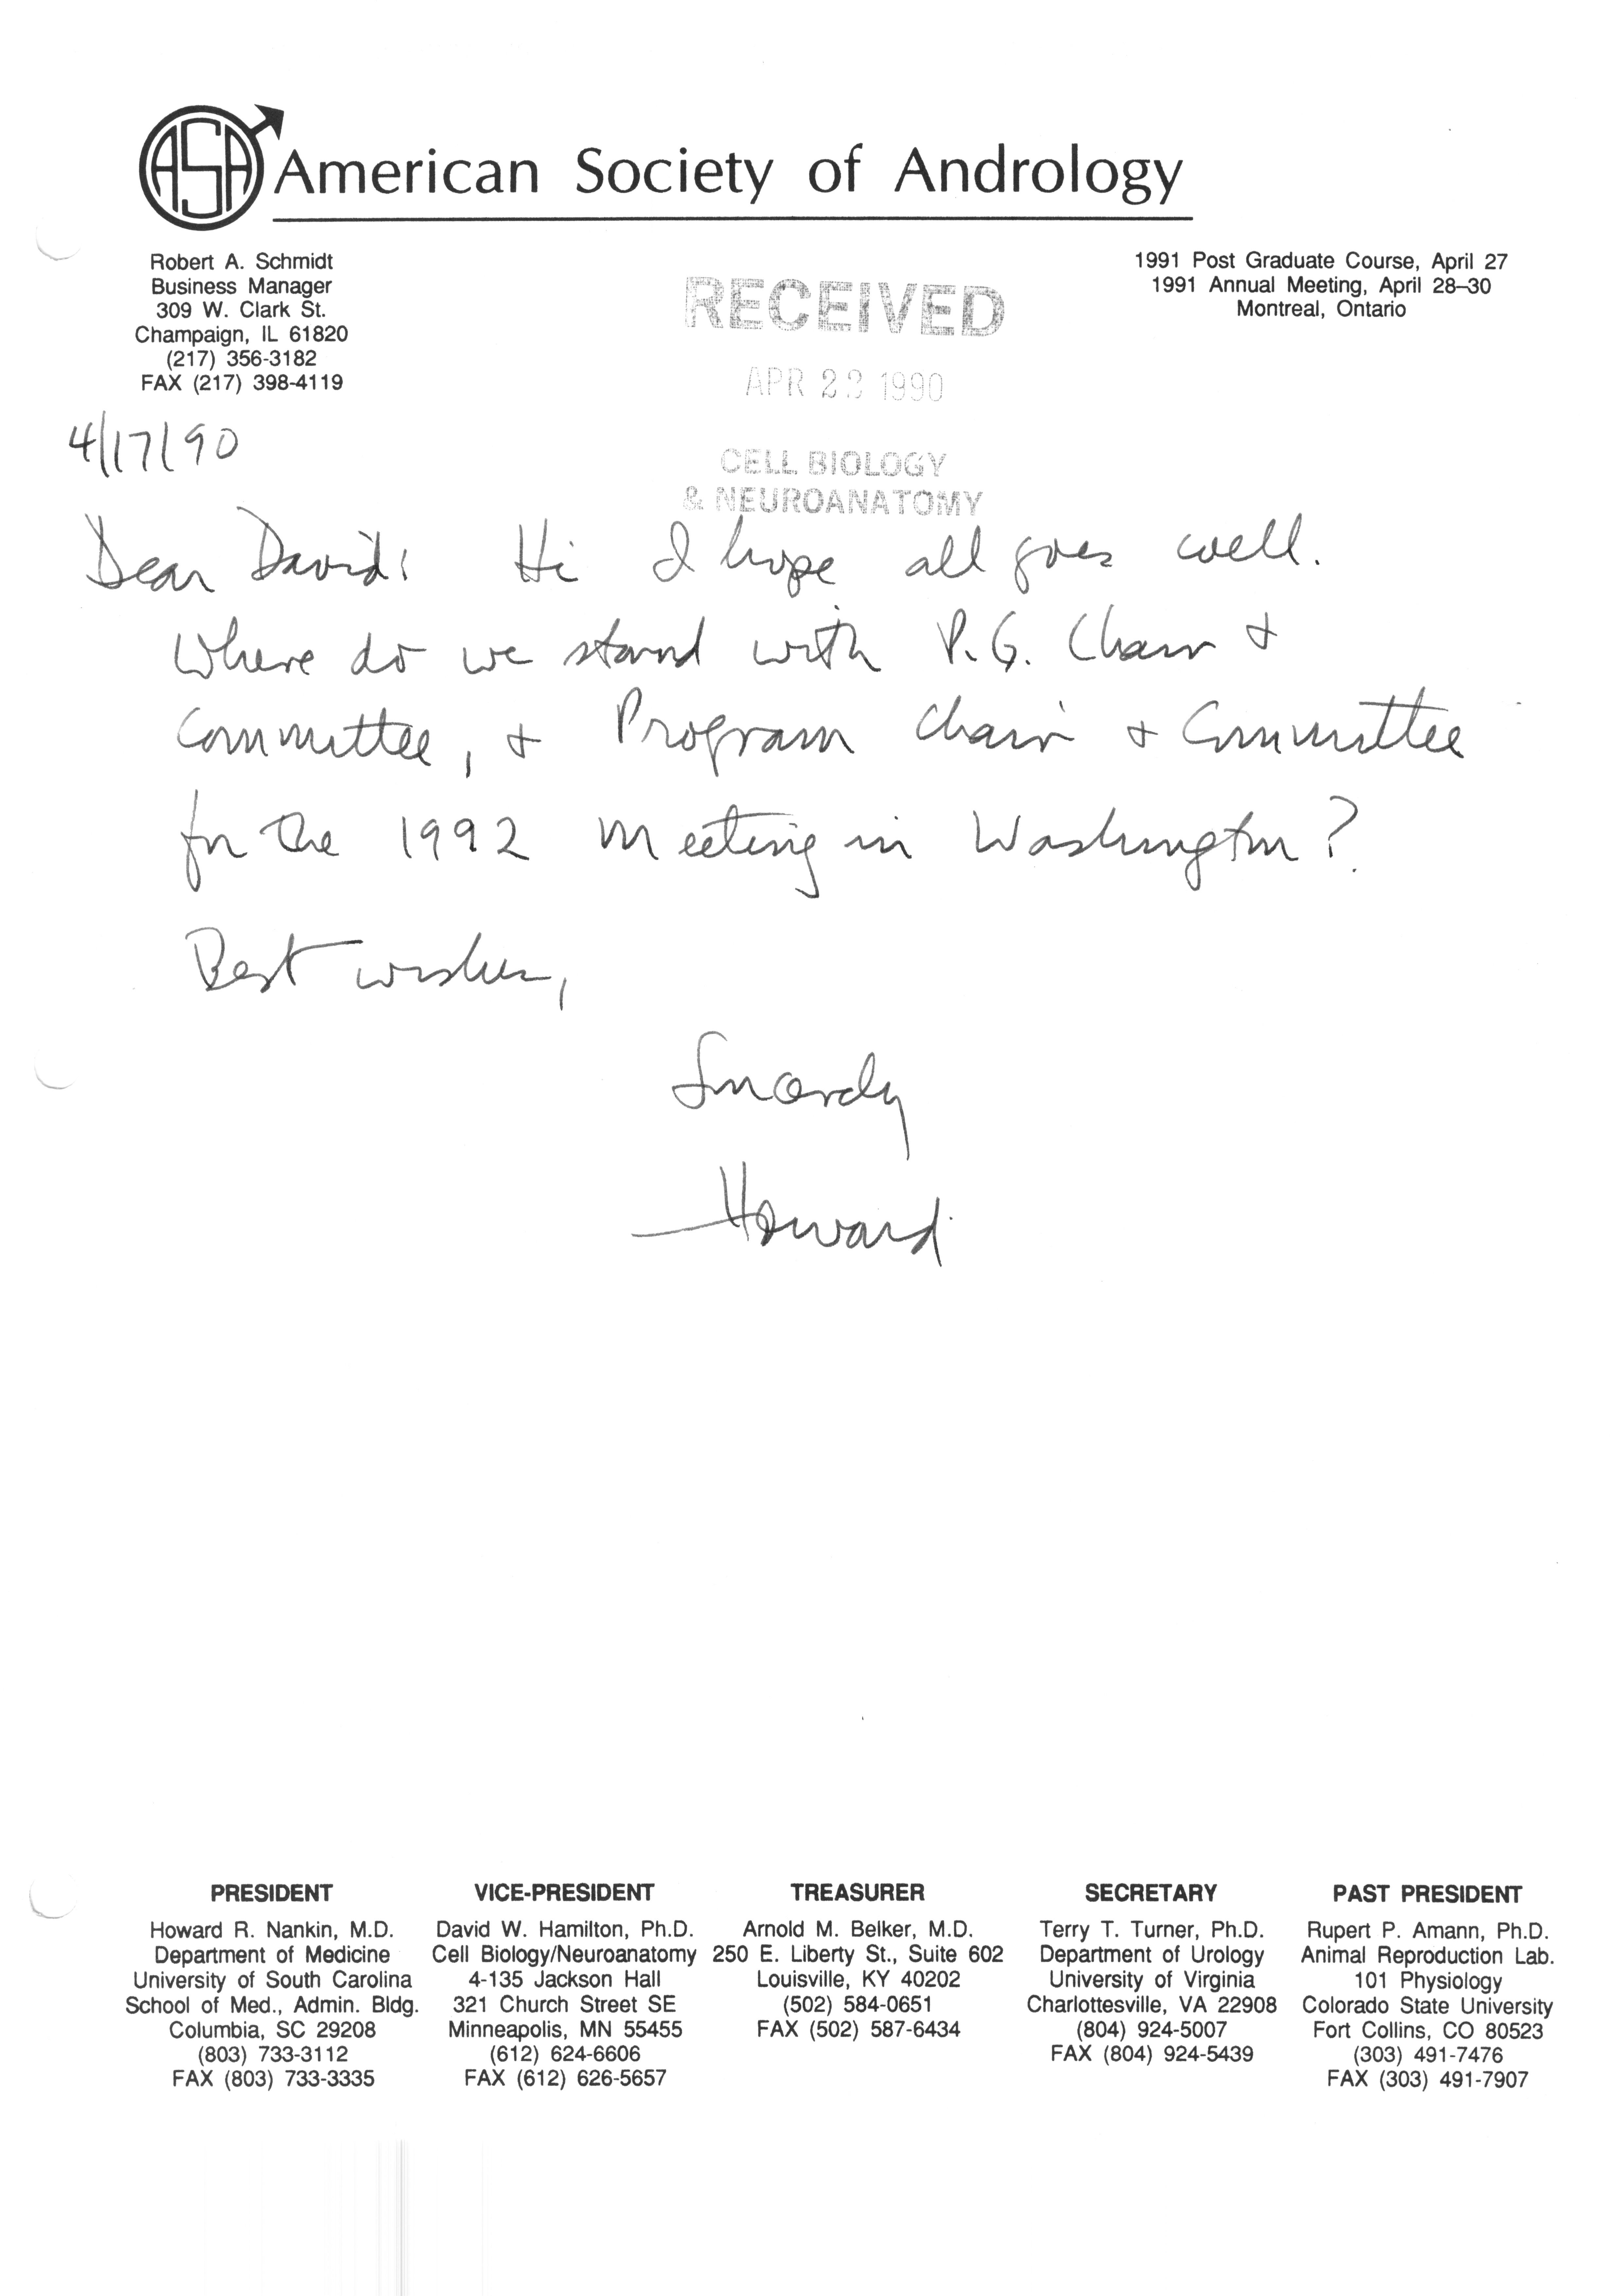 ASA American Society of Andrology
Robert A. Schmidt
Business Manager
309 W. Clark St.
Champaign, IL 61820
(217) 356-3182
FAX (217) 398-4119
1991 Post Graduate Course, April 27
1991 Annual Meeting, April 28–30
Montreal, Ontario
RECEIVED
APR 23 1990
CELL BIOLOGY
& NEUROANATOMY
4/17/90
Dear David: Hi I hope all goes well.
Where do we stand with P.G. Chair &
Committee, & Program Chair & Committee
for the 1992 Meeting in Washington?
Best wishes,
Sincerely
Howard
PRESIDENT
Howard R. Nankin, M.D.
Department of Medicine
University of South Carolina
School of Med., Admin. Bldg.
Columbia, SC 29208
(803) 733-3112
FAX (803) 733-3335
VICE-PRESIDENT
David W. Hamilton, Ph.D.
Cell Biology/Neuroanatomy
4-135 Jackson Hall
321 Church Street SE
Minneapolis, MN 55455
(612) 624-6606
FAX (612) 626-5657
TREASURER
Arnold M. Belker, M.D.
250 E. Liberty St., Suite 602
Louisville, KY 40202
(502) 584-0651
FAX (502) 587-6434
SECRETARY
Terry T. Turner, Ph.D.
Department of Urology
University of Virginia
Charlottesville, VA 22908
(804) 924-5007
FAX (804) 924-5439
PAST PRESIDENT
Rupert P. Amann, Ph.D.
Animal Reproduction Lab.
101 Physiology
Colorado State University
Fort Collins, CO 80523
(303) 491-7476
FAX (303) 491-7907